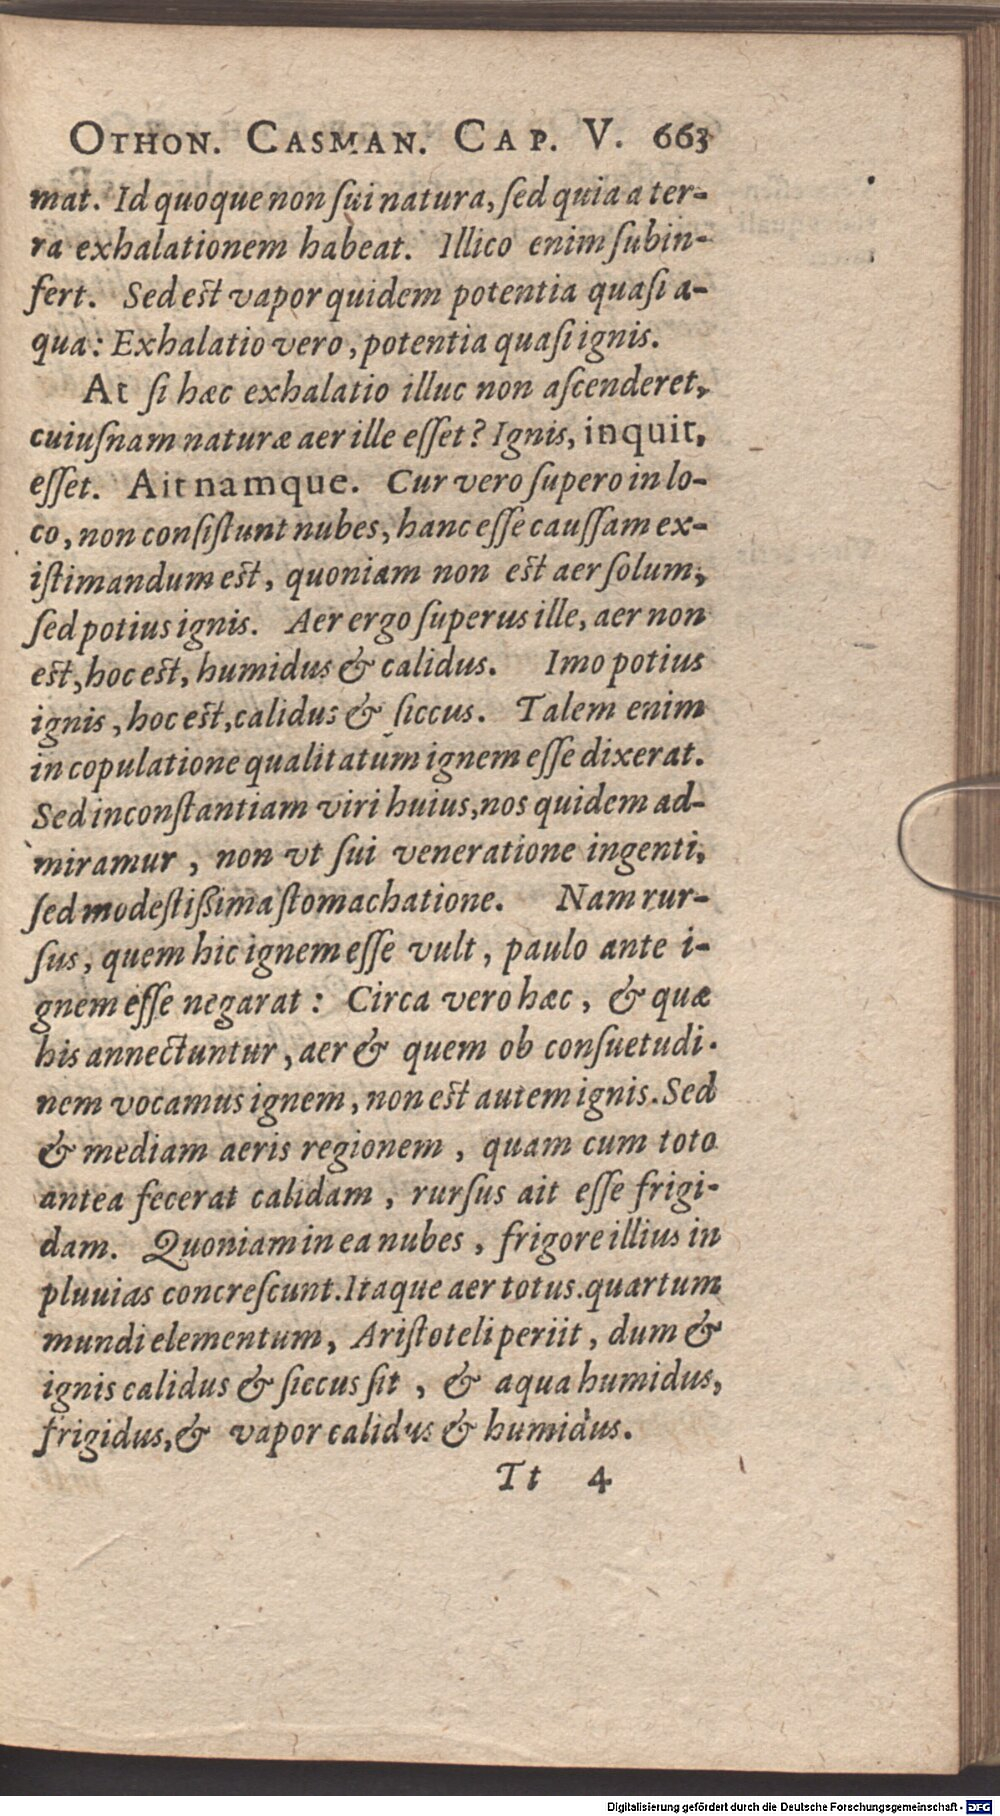 OTHON. CASMAN. CAP. V. 663
mat. Id quoque non ſui natura, ſed quia a ter-
ra exhalationem habeat. Illico enim ſubin-
fert. Sed est vapor quidem potentia quaſi a-
qua: Exhalatio vero, potentia quaſi ignis.
At ſi hæc exhalatio illuc non aſcenderet,
cuiuſnam naturæ aer ille eſſet? Ignis, inquit,
eſſet. Ait namque. Cur vero ſupero in lo-
co, non conſiſtunt nubes, hanc eſſe cauſſam ex-
iſtimandum est, quoniam non est aer ſolum,
ſed potius ignis. Aer ergo ſuperus ille, aer non
est, hoc est, humidus & calidus. Imo potius
ignis, hoc est, calidus & ſiccus. Talem enim
in copulatione qualitatum ignem eſſe dixerat.
Sed inconſtantiam viri huius, nos quidem ad-
miramur, non vt ſui veneratione ingenti,
ſed modeſtiſſima ſtomachatione. Nam rur-
ſus, quem hic ignem eſſe vult, paulo ante i-
gnem eſſe negarat: Circa vero hæc, & quæ
his annectuntur, aer & quem ob conſuetudi-
nem vocamus ignem, non est autem ignis. Sed
& mediam aeris regionem, quam cum toto
antea fecerat calidam, rurſus ait eſſe frigi-
dam. Quoniam in ea nubes, frigore illius in
pluuias concreſcunt. Itaque aer totus. quartum
mundi elementum, Ariſtoteli periit, dum &
ignis calidus & ſiccus ſit, & aqua humidus,
frigidus, & vapor calidus & humidus.
Tt 4
Digitalisierung gefördert durch die Deutsche Forschungsgemeinschaft - DFG